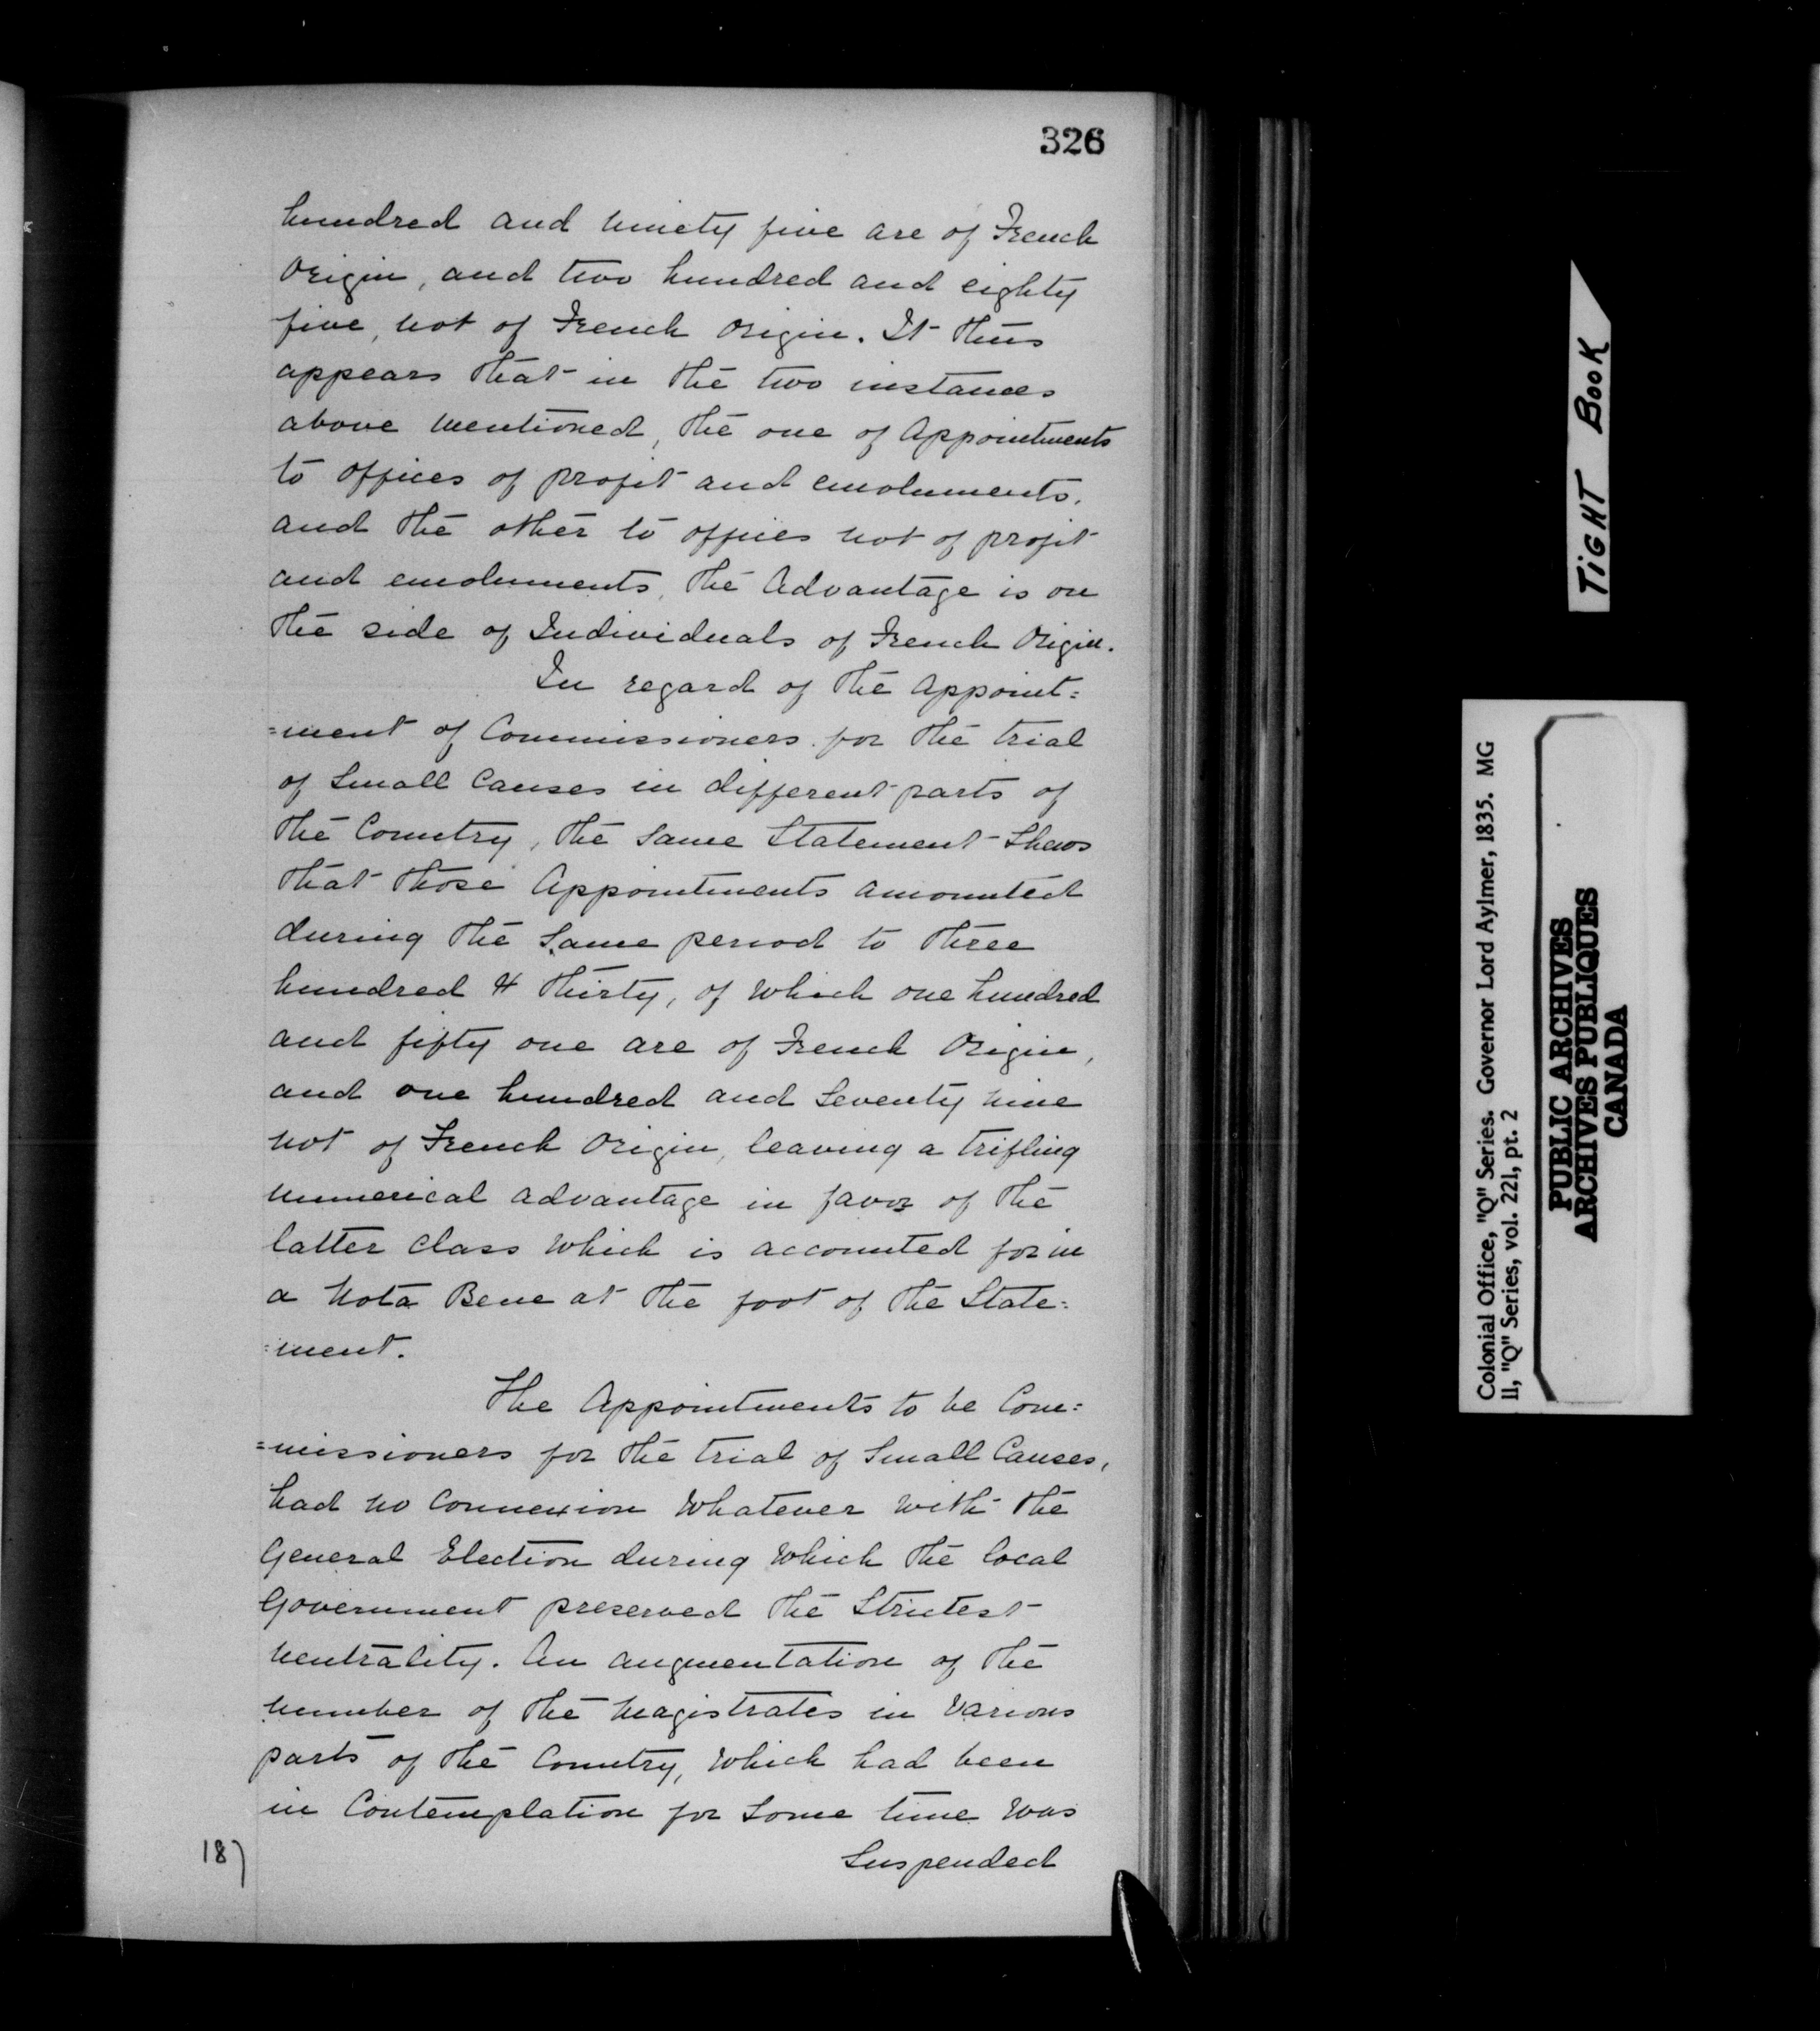 326
hundred and ninety five are of French
Origin, and two hundred and eighty
five, not of French Origin. It thus
appears that in the two instances
above mentioned, the one of Appointments
to offices of profit and emoluments,
and the other to offices not of profit
and emoluments, the Advantage is on
the side of Individuals of French Origin.
In regard of the Appoint=
=ment of Commissioners for the trial
of Small Causes in different parts of
the Country, the Same Statement Shews
that those Appointments amounted
during the Same period to three
hundred & thirty, of Which one hundred
and fifty one are of French Origin,
and one hundred and Seventy nine
not of French Origin, leaving a trifling
numerical advantage in favor of the
latter Class Which is accounted for in
a Nota Bene at the foot of the State=
=ment.
The Appointments to be Com=
=missioners for the trial of Small Causes,
had no Connexion Whatever With the
General Election during Which the local
Government preserved the Strictest
neutrality. An augmentation of the
number of the Magistrates in Various
parts of the Country, Which had been
in Contemplation for Some time Was
Suspended
187
TIGHT BOOK
Colonial Office, "Q" Series. Governor Lord Aylmer, 1835. MG
11, "Q" Series, vol. 221, pt. 2
PUBLIC ARCHIVES
ARCHIVES PUBLIQUES
CANADA